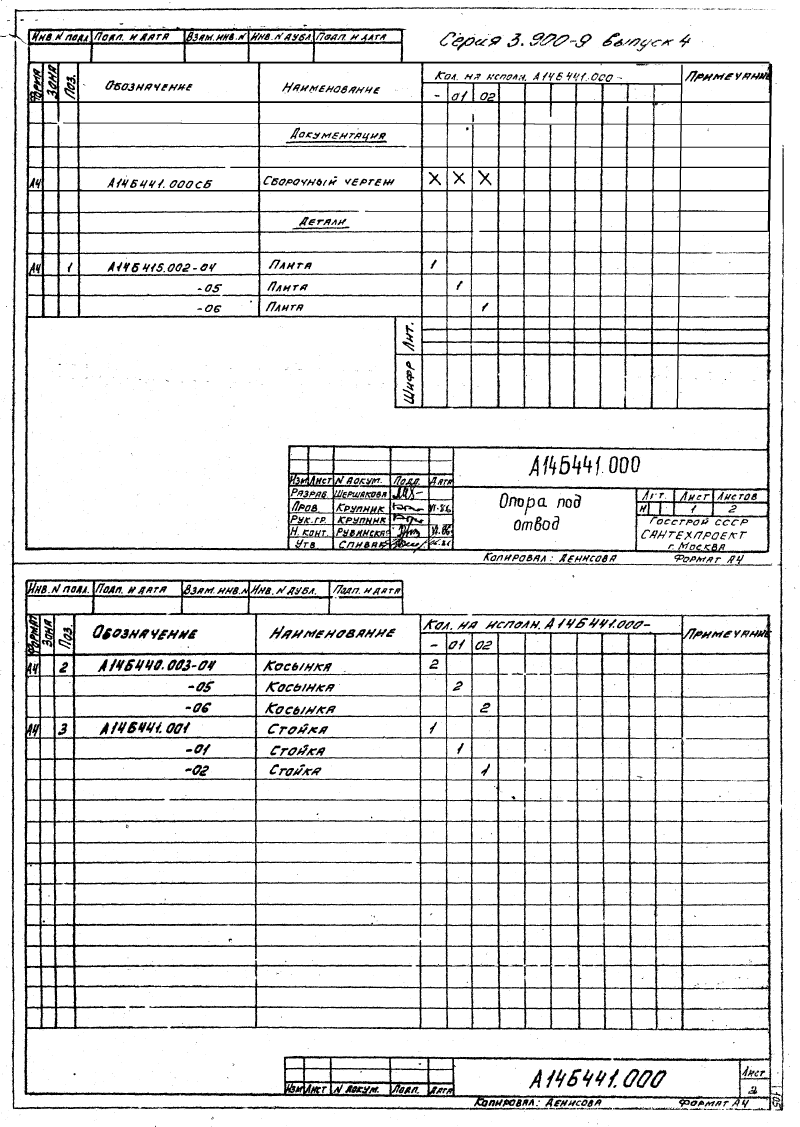 Серия 3.900-9 выпуск 4
Инв. N подл. Подп. и дата Взам. инв. N Инв. N дубл. Подп. и дата
Формат Зона Поз. Обозначение Наименование Кол. на исполн. А14Б441.000- Примечание
- 01 02
Документация
А4 А14Б441.000СБ Сборочный чертеж X X X
Детали
А4 1 А14Б415.002-04 Плита 1
-05 Плита 1
-06 Плита 1
Лит.
Шифр
А14Б441.000
Изм Лист N докум. Подп. Дата
Разраб. Шершакова
Пров. Крупник VI.86
Рук. гр. Крупник
Н. конт. Рубинская VI.86
Утв. Спивак
Опора под
отвод
Лит. Лист Листов
И 1 2
Госстрой СССР
САНТЕХПРОЕКТ
г. Москва
Копировал: Денисова Формат А4
Инв. N подл. Подп. и дата Взам. инв. N Инв. N дубл. Подп. и дата
Формат Зона Поз. Обозначение Наименование Кол. на исполн. А14Б441.000- Примечание
- 01 02
А4 2 А14Б440.003-04 Косынка 2
-05 Косынка 2
-06 Косынка 2
А4 3 А14Б441.001 Стойка 1
-01 Стойка 1
-02 Стойка 1
Изм Лист N докум. Подп. Дата
А14Б441.000
Лист
2
Копировал: Денисова Формат А4
105